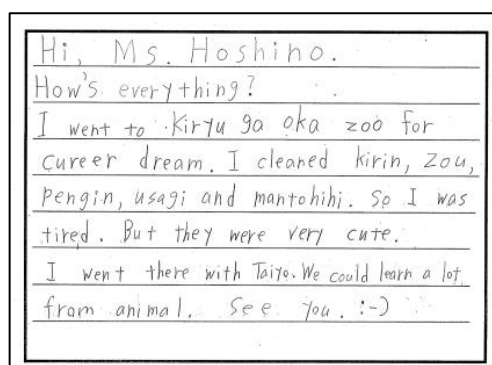 Hi, Ms. Hoshino.
How's everything?
I went to Kiryu ga oka zoo for
cureer dream. I cleaned kirin, zou,
pengin, usagi and mantohihi. So I was
tired. But they were very cute.
I went there with Taiyo. We could learn a lot
from animal. See you. :-)